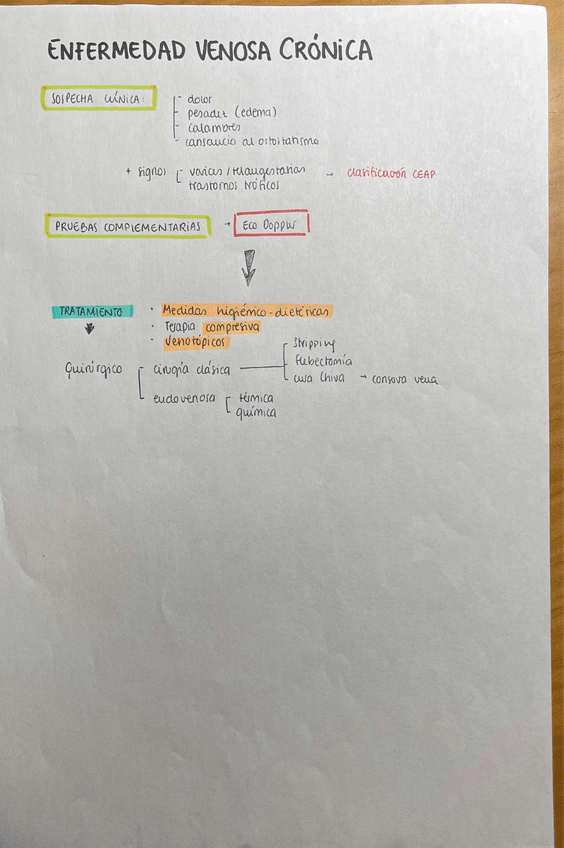 ENFERMEDAD VENOSA CRÓNICA
SOSPECHA CLÍNICA:
- dolor
- pesadez (edema)
- calambres
- cansancio al ortostatismo
+ signos [ - varices / telangiectasias → clasificación CEAP
trastornos tróficos
PRUEBAS COMPLEMENTARIAS → Eco Doppler
TRATAMIENTO
• Medidas higiénico-dietéticas
• Terapia compresiva
• Venotópicos
Quirúrgico
cirugía clásica
Stripping
Flebectomía
cura Chiva → conserva vena
endovenosa [ térmica
química